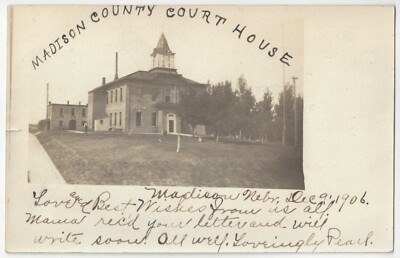 MADISON COUNTY COURT HOUSE
Madison Nebr, Dec 9, 1906.
Love & Best Wishes from us all,
Mama rec'd your letter and will
write soon. All well. Loveingly Pearl.